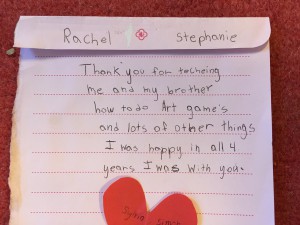 Rachel Stephanie
Thank you for tacheing
me and my brother
how to do Art game's
and lots of other things
I was happy in all 4
years I was with you.